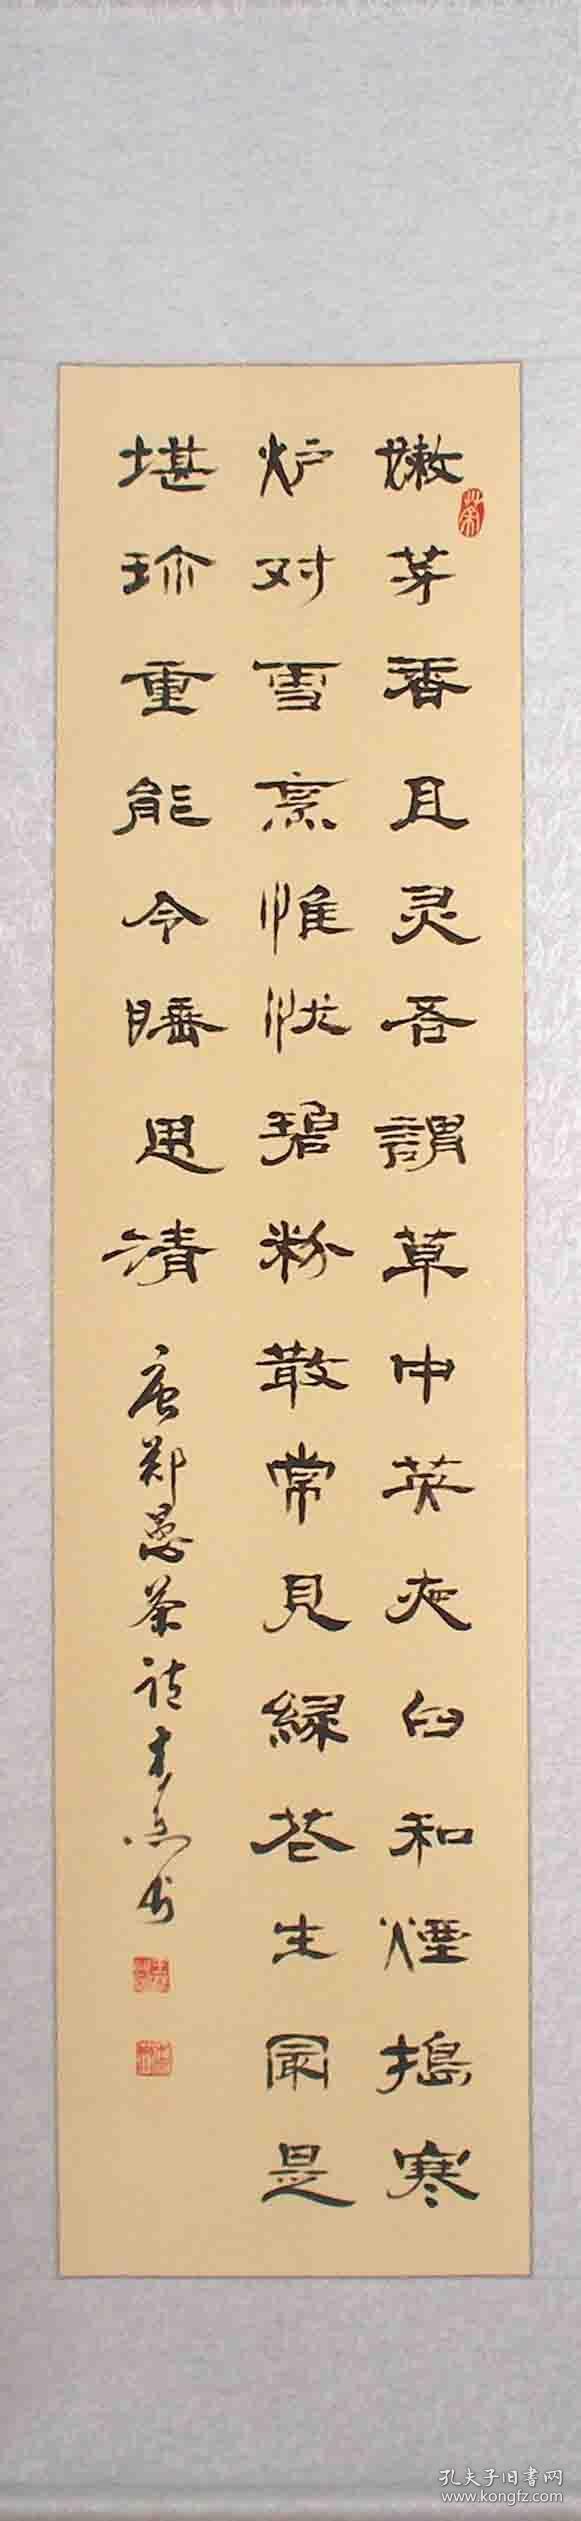 嫩芽香且灵吾谓草中英夜臼和煙搗寒
炉对雪烹惟忧碧粉散常见緑花生最是
堪珍重能令睡思清
唐郑愚茶诗
孔夫子旧书网
www.kongfz.com